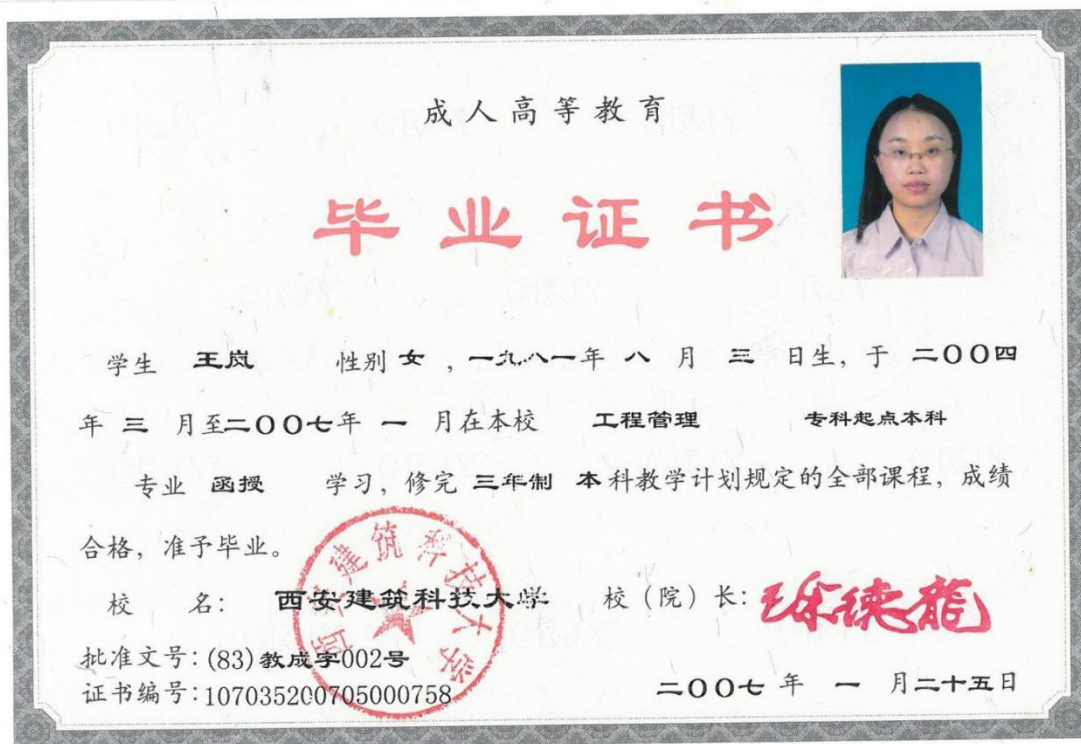 成人高等教育
毕业证书
学生 王岚 性别 女 ，一九八一年 八 月 三 日生，于 二〇〇四
年 三 月至二〇〇七年 一 月在本校 工程管理 专科起点本科
专业 函授 学习，修完 三年制 本科教学计划规定的全部课程，成绩
合格，准予毕业。
校 名： 西安建筑科技大学 校（院）长：徐德龙
批准文号：(83)教成字002号
证书编号：107035200705000758
二〇〇七 年 一 月二十五日
西安建筑科技大学